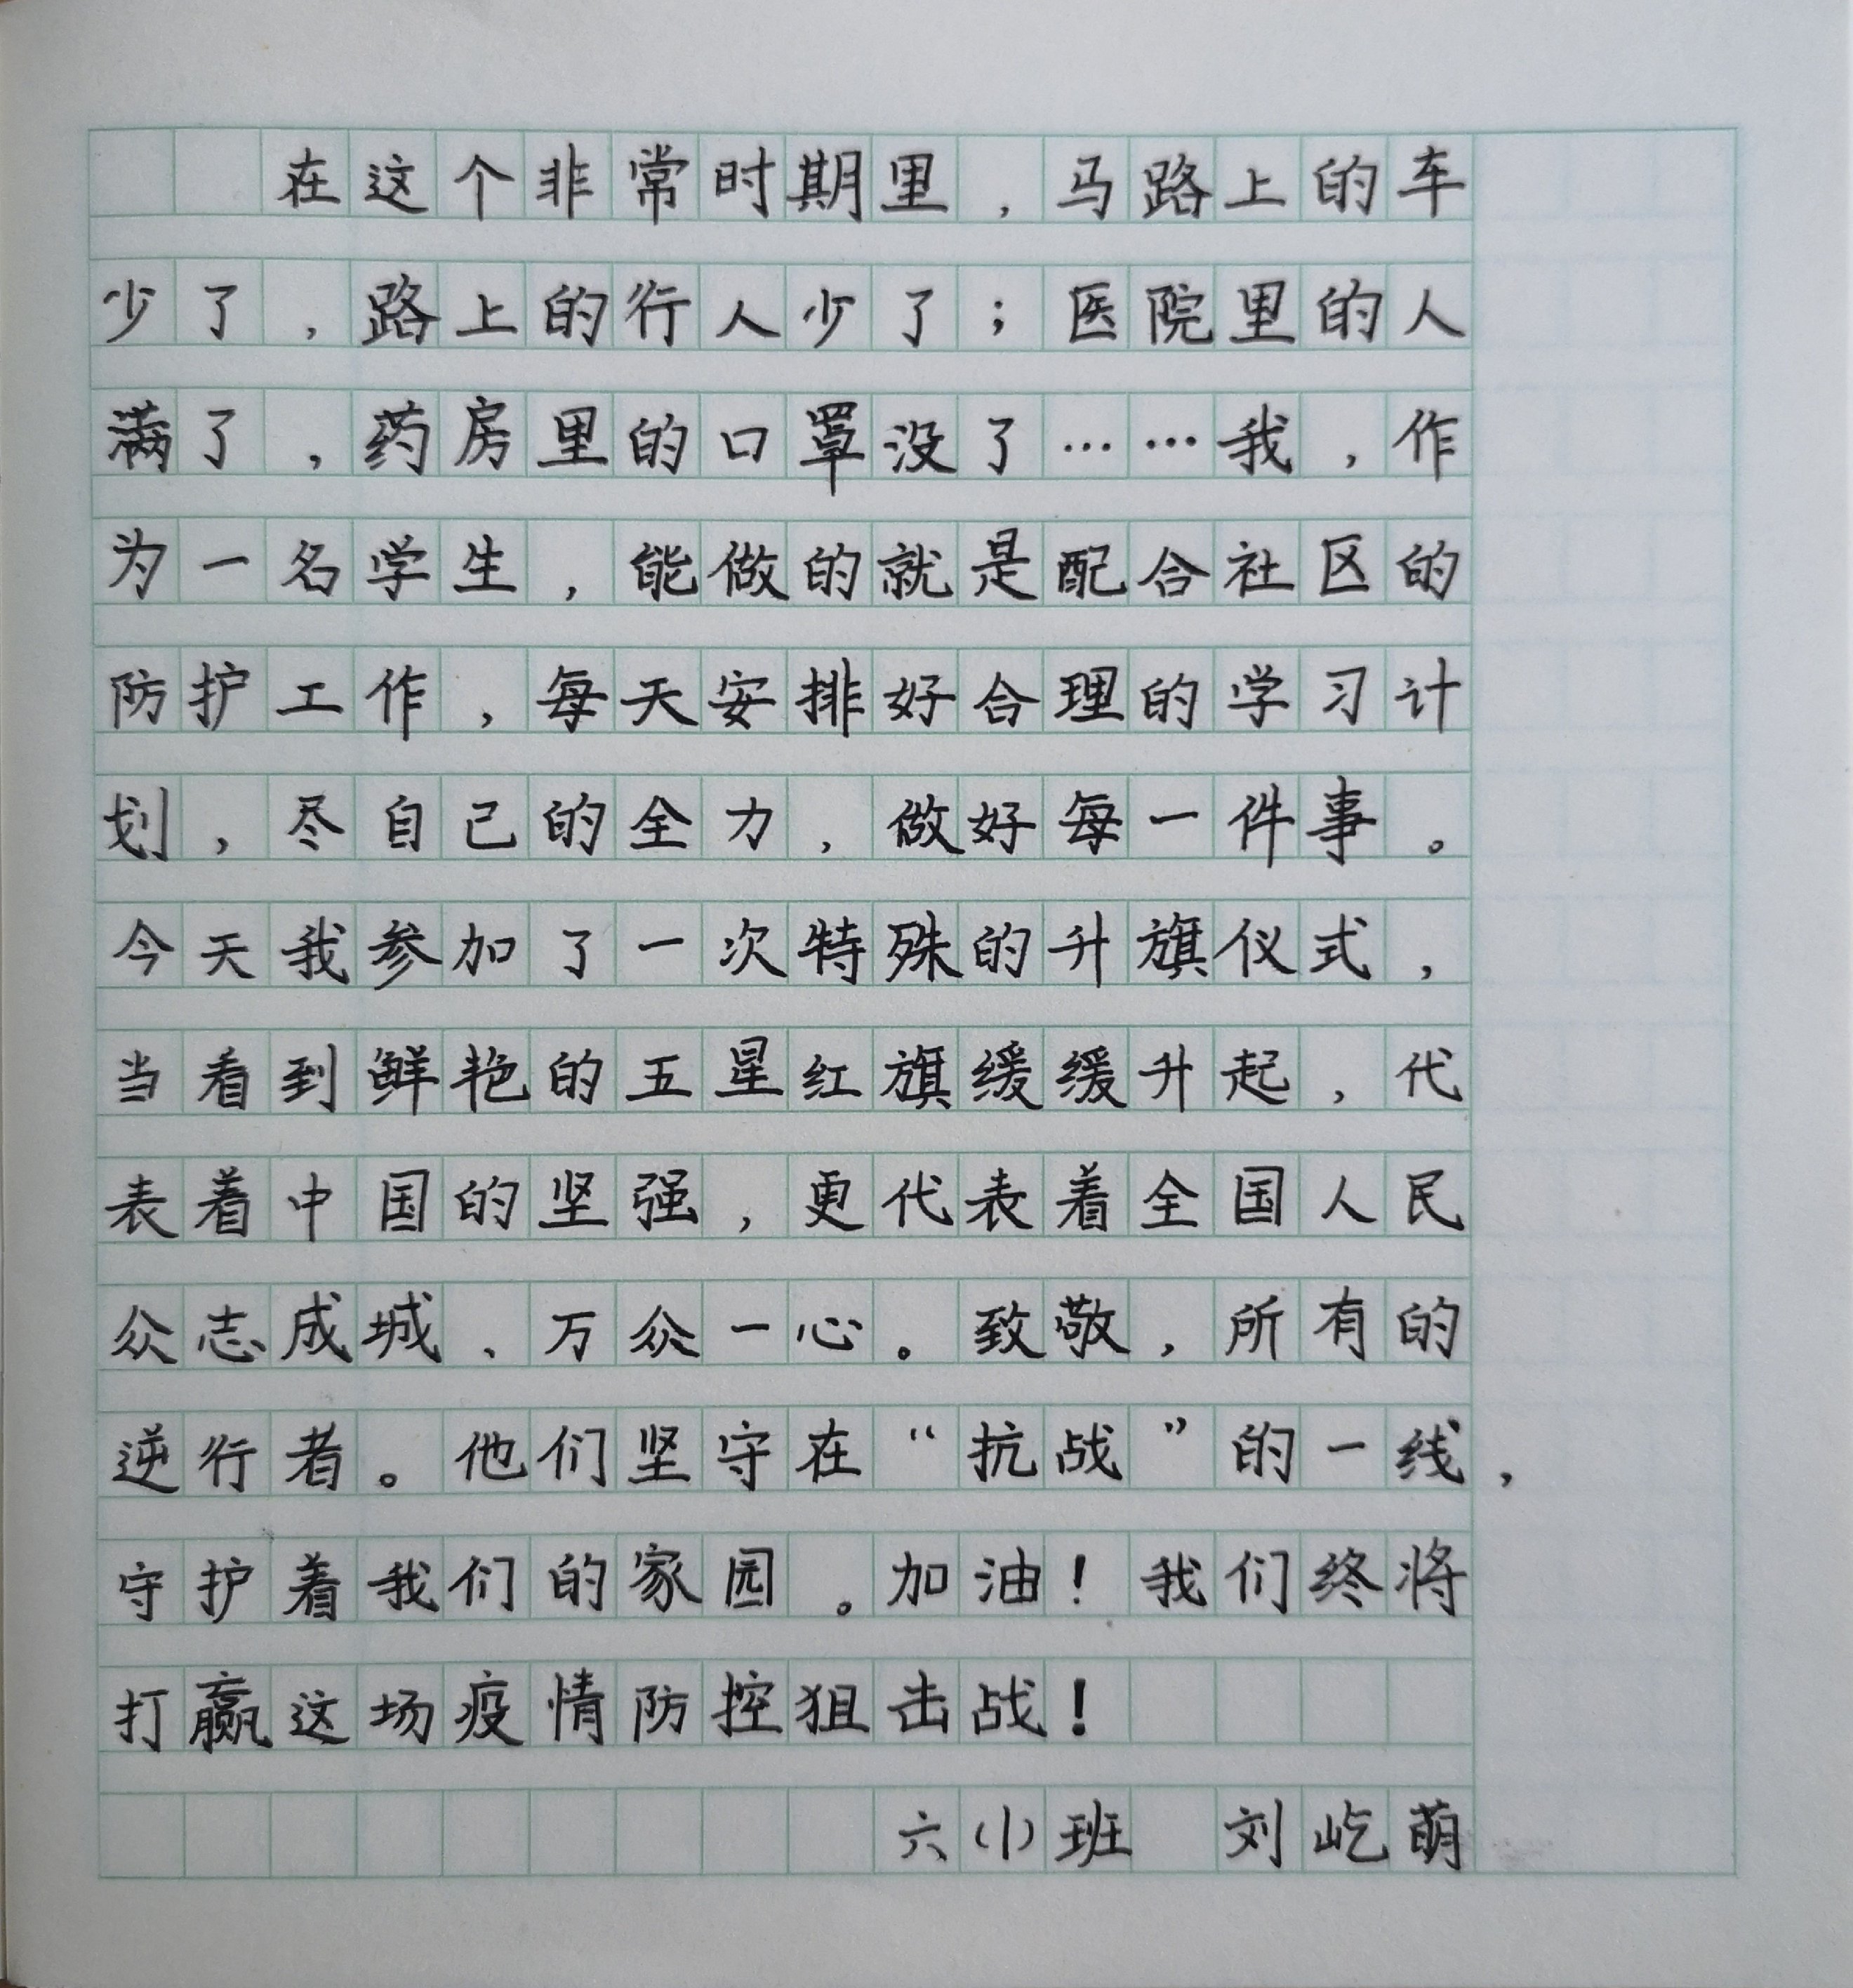 在这个非常时期里，马路上的车
少了，路上的行人少了；医院里的人
满了，药房里的口罩没了……我，作
为一名学生，能做的就是配合社区的
防护工作，每天安排好合理的学习计
划，尽自己的全力，做好每一件事。
今天我参加了一次特殊的升旗仪式，
当看到鲜艳的五星红旗缓缓升起，代
表着中国的坚强，更代表着全国人民
众志成城、万众一心。致敬，所有的
逆行者。他们坚守在“抗战”的一线，
守护着我们的家园。加油！我们终将
打赢这场疫情防控狙击战！
六（1）班 刘屹萌